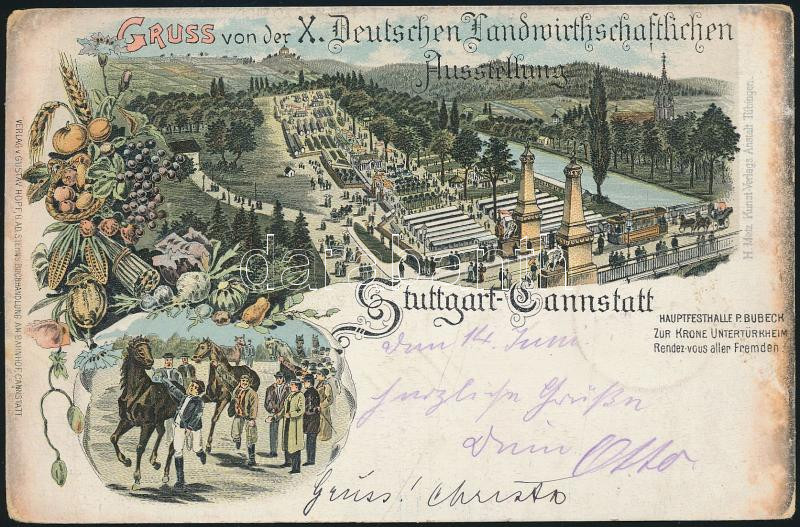 Gruss von der X. Deutschen Landwirthschaftlichen
Ausstellung
Stuttgart-Cannstatt
HAUPTFESTHALLE P. BUBECK
ZUR KRONE UNTERTÜRKHEIM
Rendez-vous aller Fremden
den 14. Juni
herzliche Grüße
Dein Otto
Gruss! Christa
VERLAG V. GUSTAV HOPF, H. AD. STEHN'S BUCHHANDLUNG AM BAHNHOF, CANNSTATT.
H. Metz, Kunst-Verlags-Anstalt, Tübingen.
darabanth